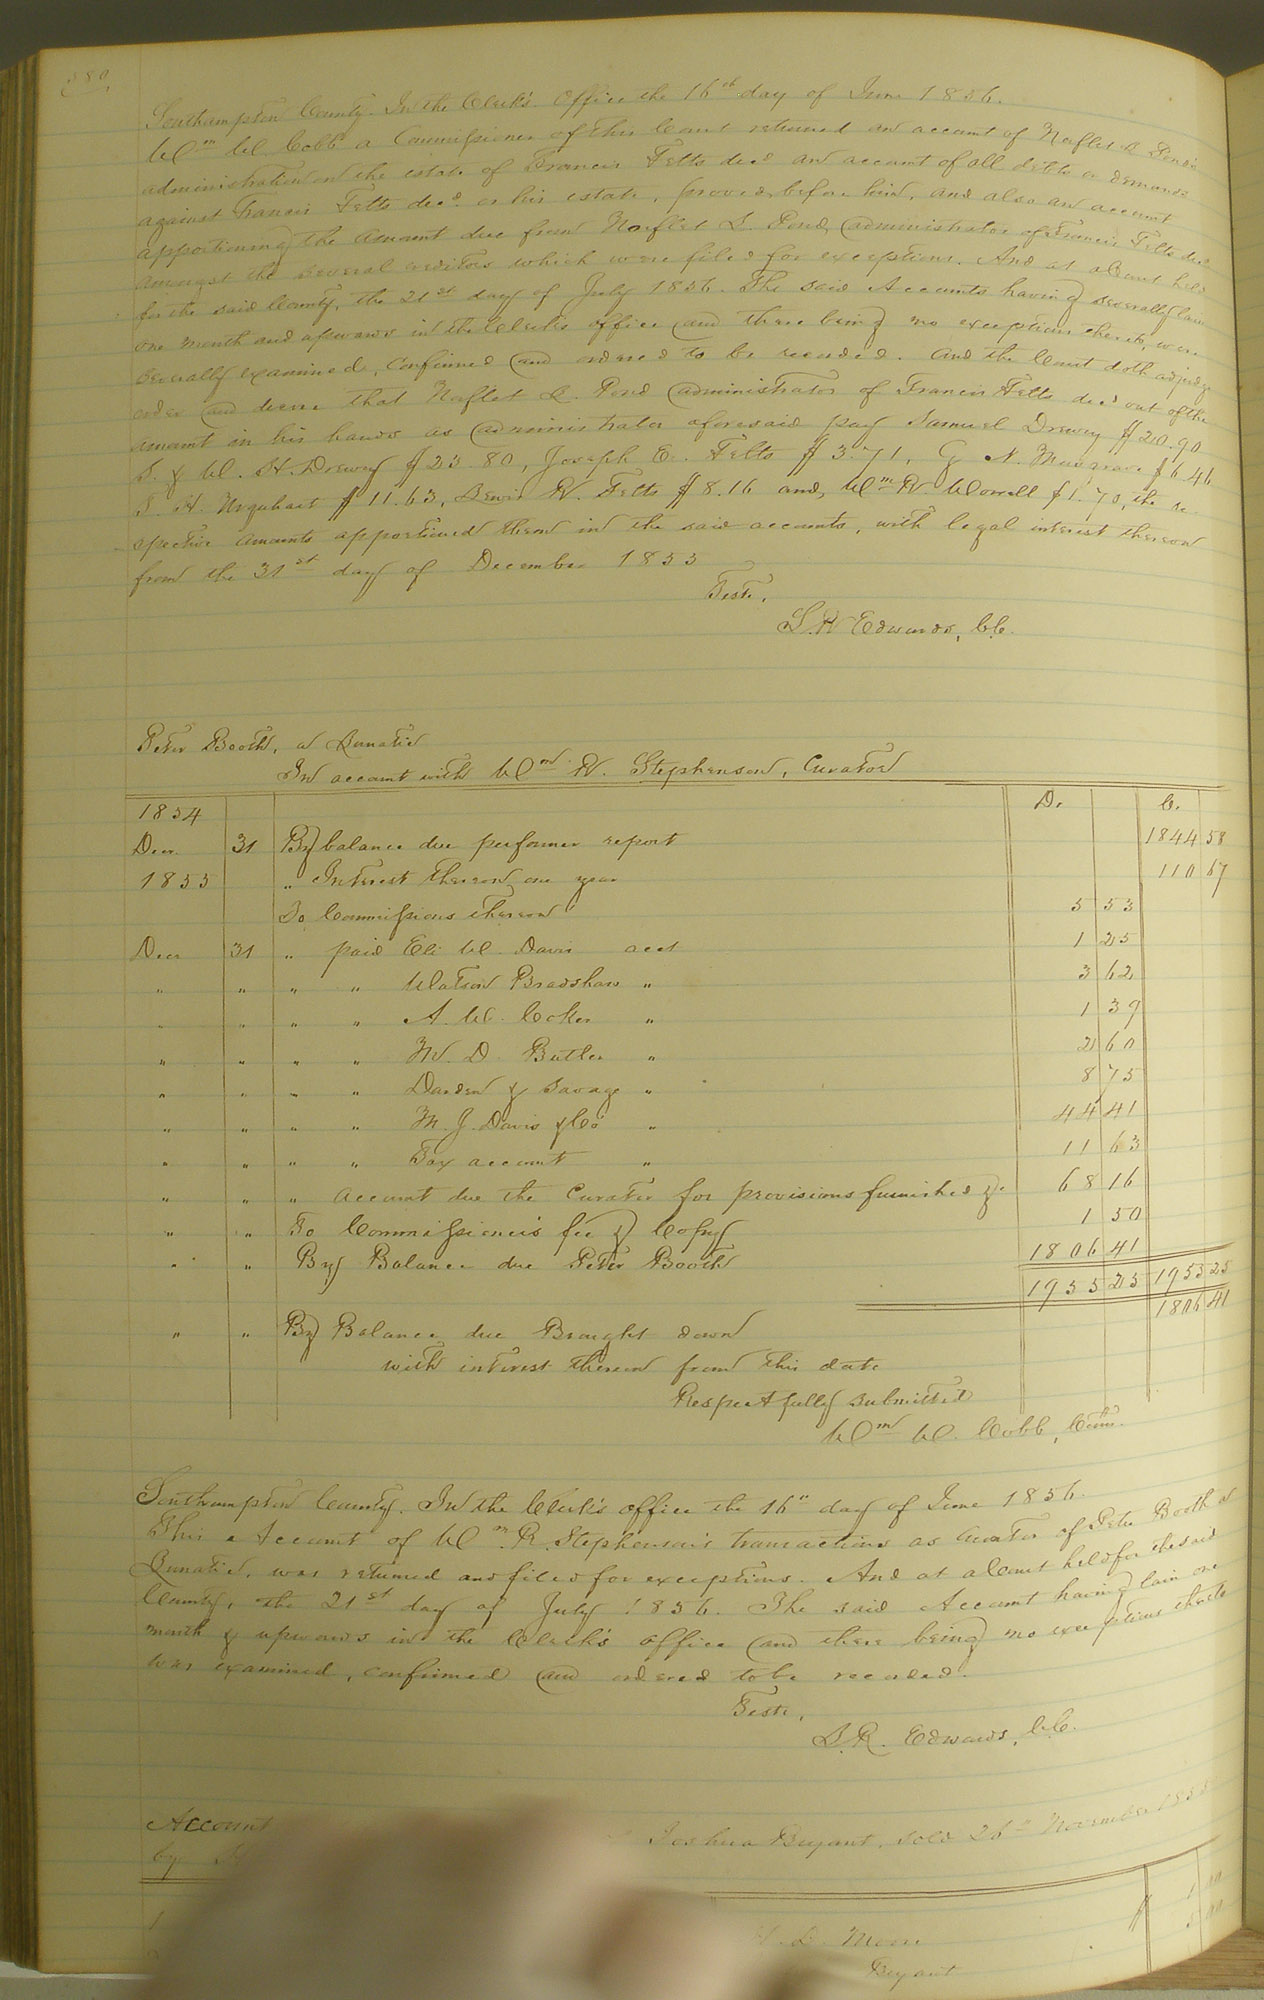 380
Southampton County. In the Clerk's Office the 16th day of June 1856.
Wm W. Cobb a Commissioner of this Court returned an account of Norflet S. Pond's
administration on the estate of Francis Felts decd an account of all debts or demands
against Francis Felts decd or his estate, proved before him, and also an account
apportioning the amount due from Norflet S. Pond administrator of Francis Felts decd
amongst the several creditors which were filed for exceptions. And at a Court held
for the said County, the 21st day of July 1856. The said Accounts having severally lain
one month and upwards in the Clerk's office and there being no exceptions thereto, were
severally examined, confirmed and ordered to be recorded. And the Court doth adjudge
order and decree that Norflet S. Pond administrator of Francis Felts decd out of the
amount in his hands as administrator aforesaid pay Samuel Drewry $20.90
S. & W. H. Drewry $23.80, Joseph E. Felts $3.71, G. N. Musgrave $6.46
J. H. Urquhart $11.63, Lewis R. Felts $8.16 and, Wm R. Worrell $1.70, the re-
spective amounts apportioned them in the said accounts, with legal interest thereon
from the 31st day of December 1853
Teste,
L. R. Edwards, C.C.
Peter Booth, a Lunatic
In account with Wm R. Stephenson, Curator
1854 Dr. Cr.
Decr. 31 By balance due per former report 1844 58
1855 " Interest thereon one year 110 67
To Commissions thereon 5 53
Decr 31 " paid Eli W. Davis acct 1 25
" " " " Watson Bradshaw " 3 62
" " " " A. W. Coker " 1 39
" " " " M. D. Butler " 2 60
" " " " Darden & Savage " 8 75
" " " " M. J. Davis & Co " 44 41
" " " " Tax account " 11 63
" " " account due the Curator for provisions furnished &c. 68 16
" " To Commissioner's fee & Copy 1 50
" " By Balance due Peter Booth 1806 41
1955 25 1955 25
" " By Balance due Brought down 1806 41
with interest thereon from this date
Respectfully submitted
Wm W. Cobb, Comr.
Southampton County. In the Clerk's office the 16" day of June 1856.
This Account of Wm R. Stephenson's transactions as Curator of Peter Booth a
Lunatic, was returned and filed for exceptions. And at a Court held for the said
County, the 21st day of July 1856. The said Account having lain one
month & upwards in the Clerk's office and there being no exceptions thereto
was examined, confirmed and ordered to be recorded.
Teste,
L. R. Edwards, C.C.
Account Joshua Bryant, sold 26th November 1855
by
1 Moore $ 1 00
Bryant 5 00